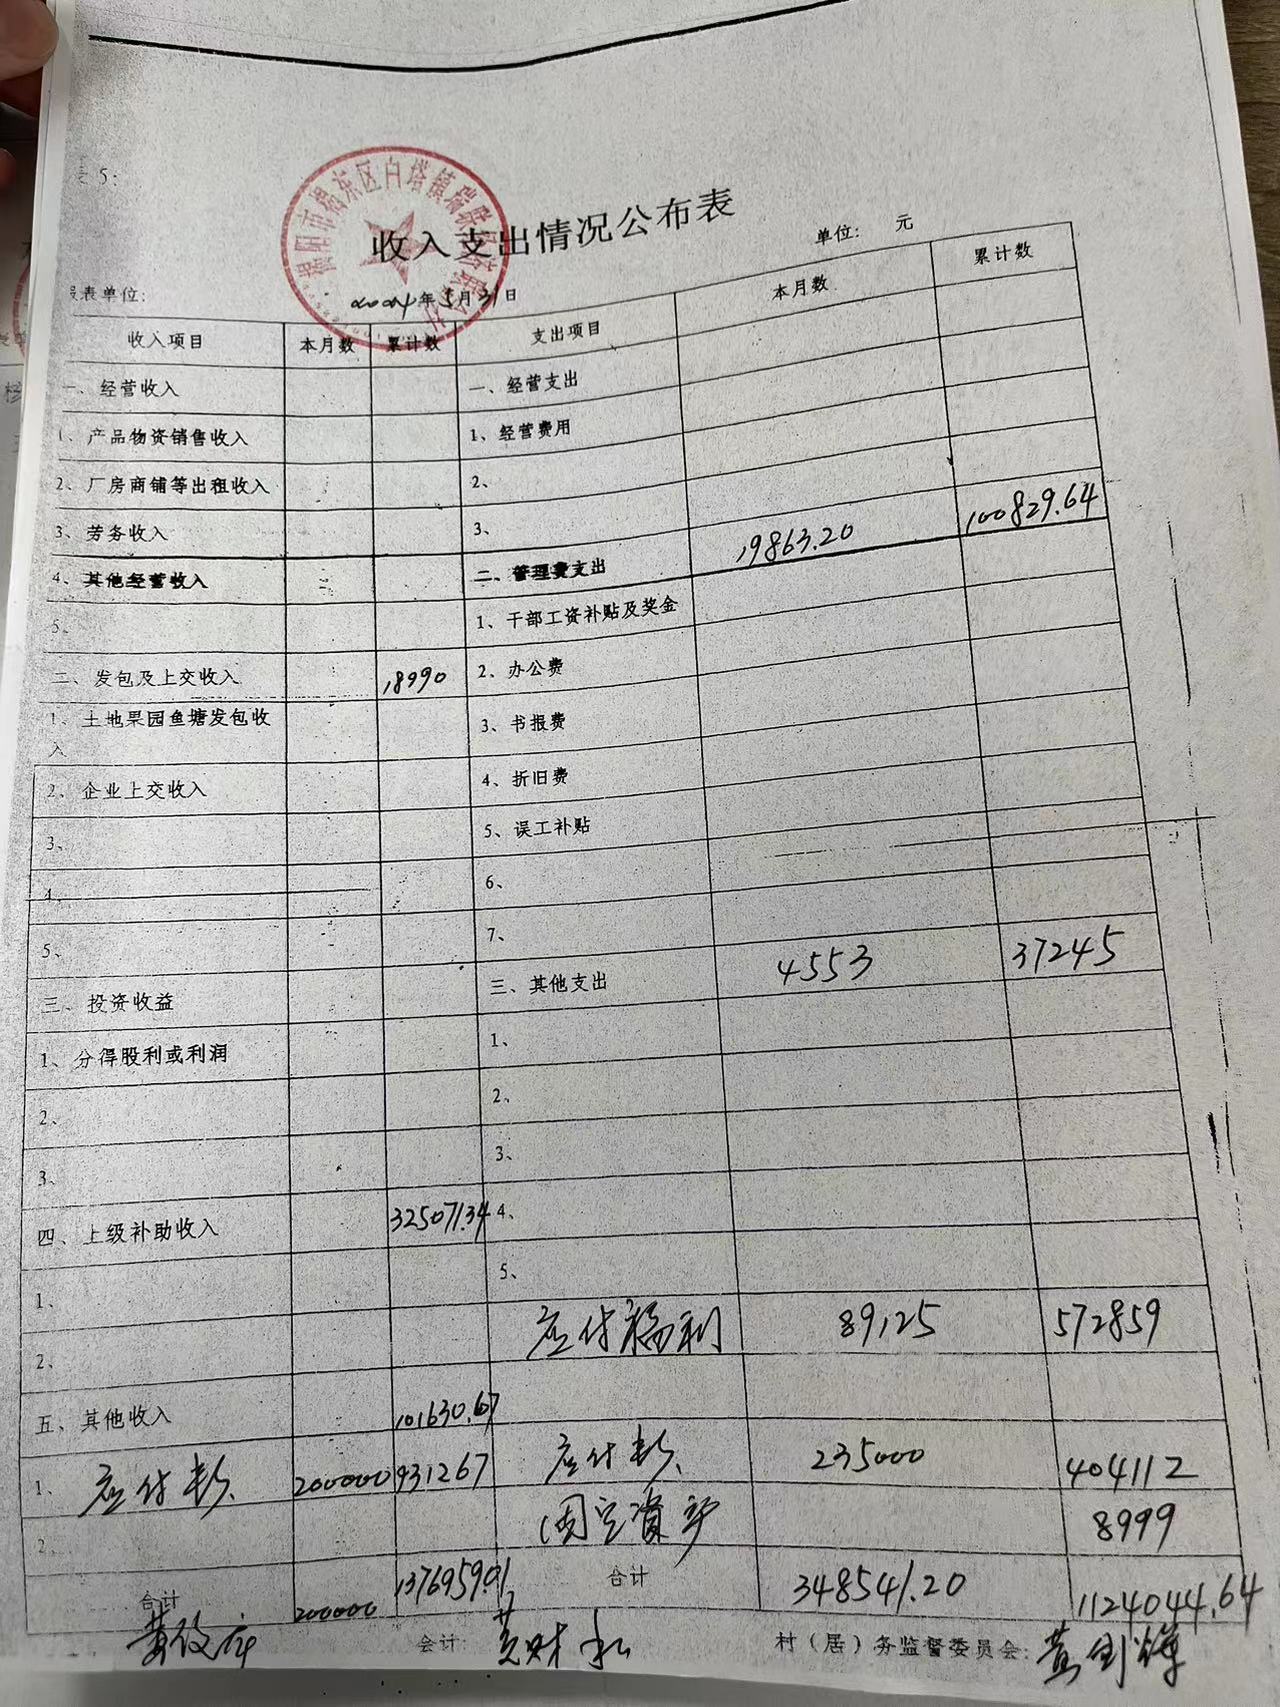 表 5:
收入支出情况公布表
报表单位: 2024年5月31日 单位: 元
收入项目 本月数 累计数 支出项目 本月数 累计数
一、经营收入 一、经营支出
1、产品物资销售收入 1、经营费用
2、厂房商铺等出租收入 2、
3、劳务收入 3、
4、其他经营收入 二、管理费支出 19863.20 100829.64
5、 1、干部工资补贴及奖金
二、发包及上交收入 18990 2、办公费
1、土地果园鱼塘发包收入 3、书报费
2、企业上交收入 4、折旧费
3、 5、误工补贴
4、 6、
5、 7、
三、投资收益 三、其他支出 4553 37245
1、分得股利或利润 1、
2、 2、
3、 3、
四、上级补助收入 325071.34 4、
1、 5、
2、 应付福利 89125 572859
五、其他收入 101630.67
1、应付款 200000 931267 应付款 235000 404112
2、 固定资产 8999
合计 200000 1376959.01 合计 348541.20 1124044.64
会计: 黄财弘 村(居)务监督委员会: